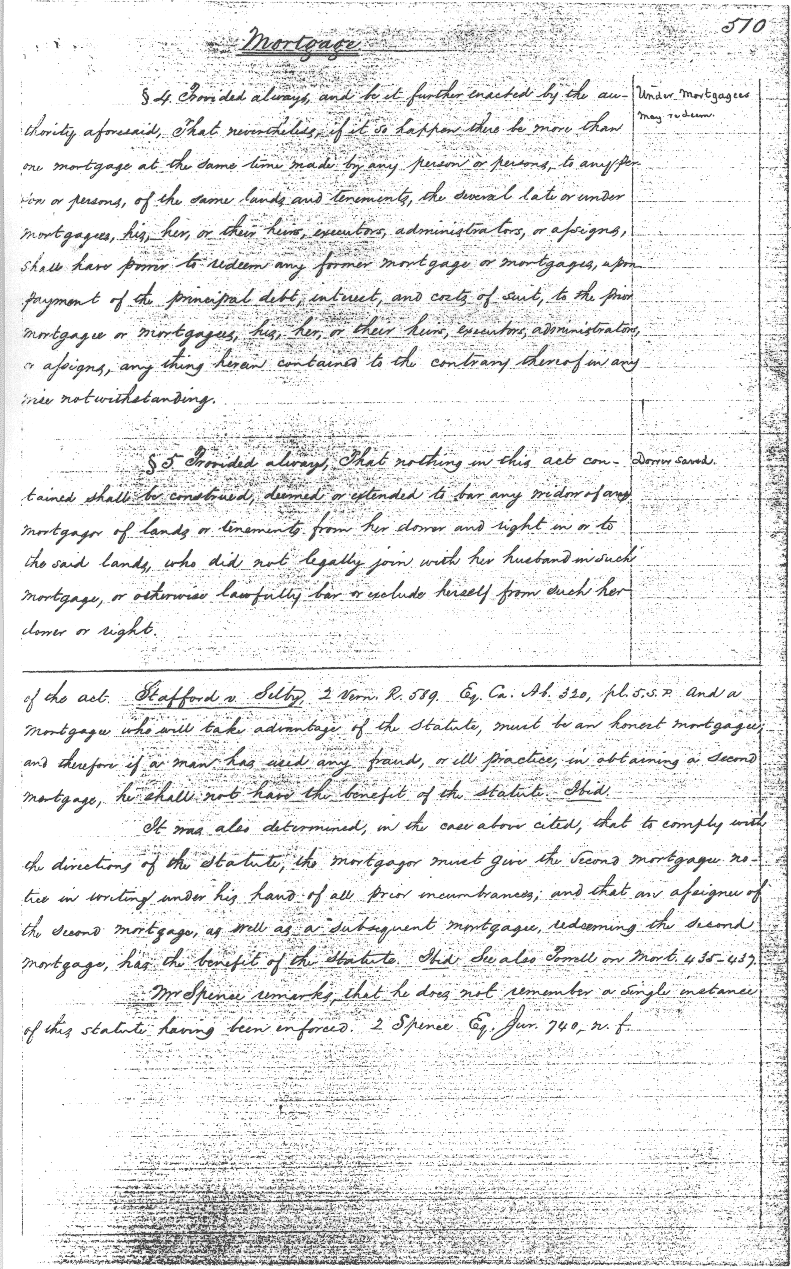 510
Mortgage.
§ 4 Provided always, and be it further enacted by the au-
thority aforesaid, That nevertheless, if it so happen there be more than
one mortgage at the same time made by any person or persons, to any per-
son or persons, of the same lands and tenements, the several late or under
mortgagees, his, her, or their heirs, executors, administrators, or assigns,
shall have power to redeem any former mortgage or mortgages, upon
payment of the principal debt, interest, and costs of suit, to the prior
mortgagee or mortgagees, his, her, or their heirs, executors, administrators,
or assigns, any thing herein contained to the contrary thereof in any
wise notwithstanding.
Under Mortgagees
may redeem.
§ 5 Provided always, That nothing in this act con-
tained shall be construed, deemed or extended to bar any widow of any
mortgagor of lands or tenements from her dower and right in or to
the said lands, who did not legally join with her husband in such
mortgage, or otherwise lawfully bar or exclude herself from such her
dower or right.
Dower saved.
of the act. Stafford v. Selby, 2 Vern. R. 589. Eq. Ca. Ab. 320, pl. 5. S. P. And a
mortgagee who will take advantage of the statute, must be an honest mortgagee;
and therefore if a man has used any fraud, or ill practice, in obtaining a second
mortgage, he shall not have the benefit of the statute. Ibid.
It was also determined, in the case above cited, that to comply with
the directions of the statute, the mortgagor must give the second mortgagee no-
tice in writing under his hand of all prior incumbrances; and that an assignee of
the second mortgage, as well as a subsequent mortgagee, redeeming the second
mortgage, has the benefit of the statute. Ibid. See also Powell on Mort. 435-437.
Mr Spence remarks, that he does not remember a single instance
of this statute having been enforced. 2 Spence Eq. Jur. 740, n. f.